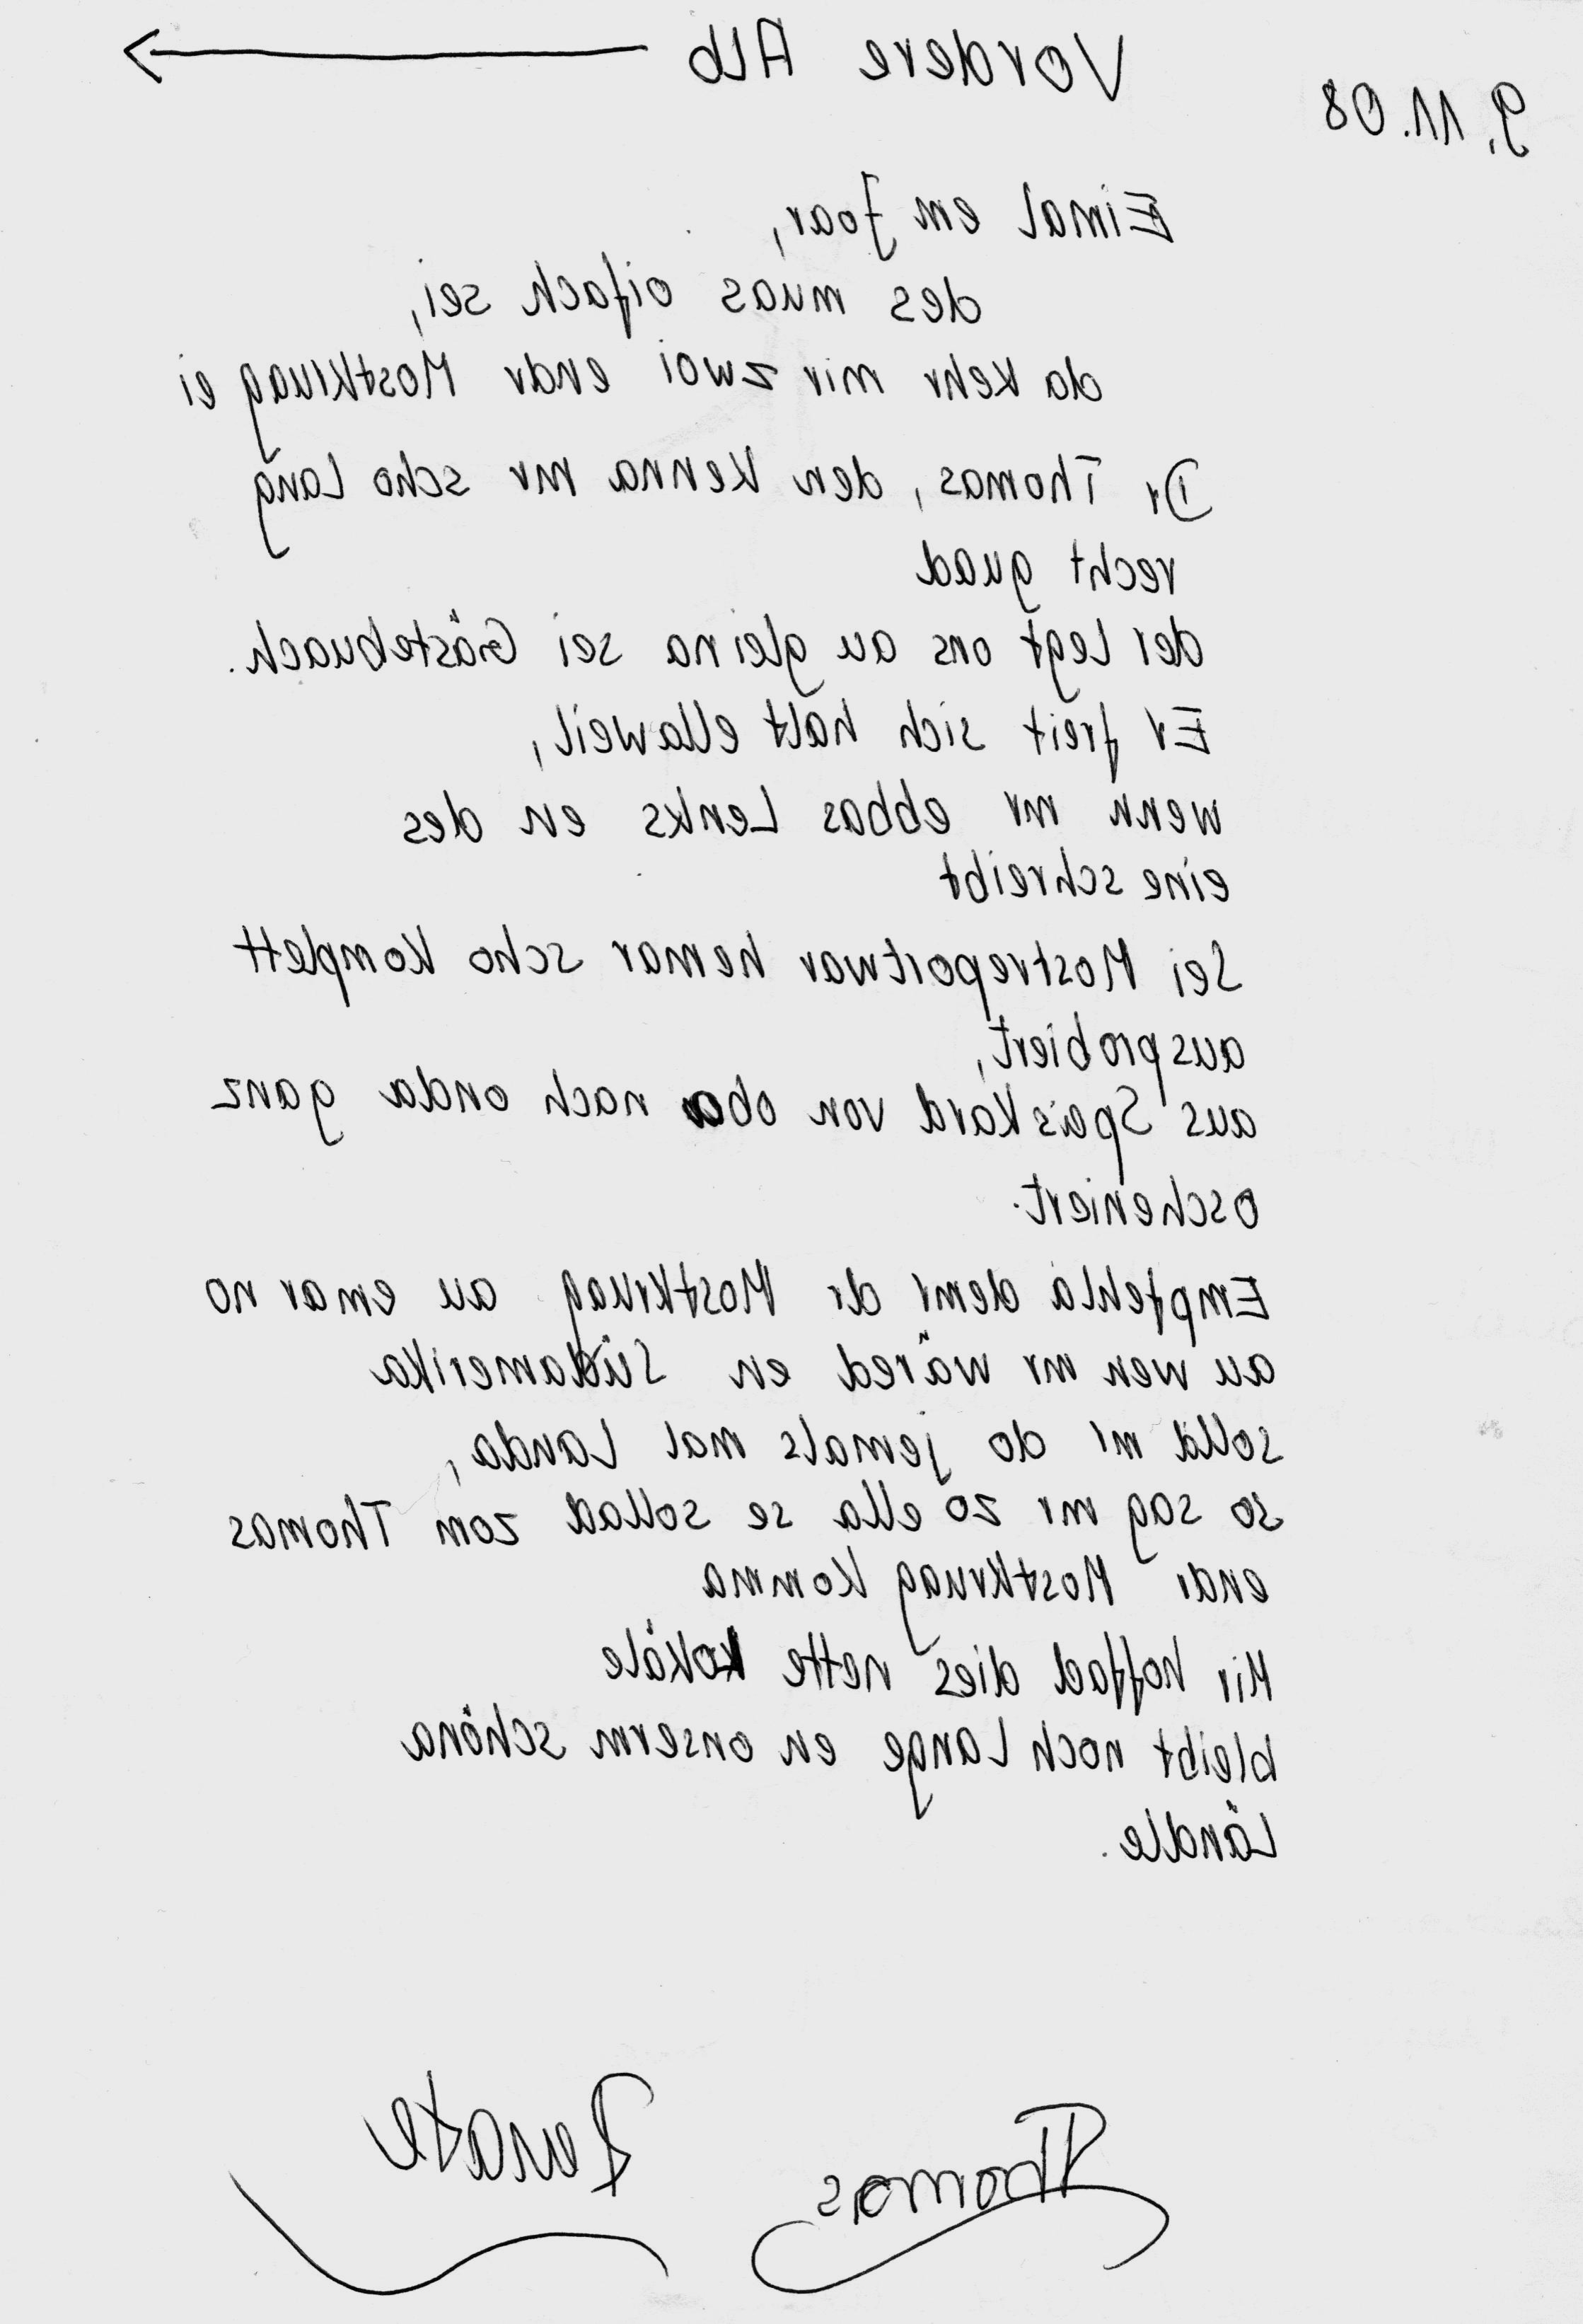 Vordere Alb
9.11.08
Eimal em Joar,
des muas oifach sei,
da kehr mir zwoi endr Mostkruag ei
Dr Thomas, den kenna mr scho lang
recht guad
der legt ons au gleina sei Gästebuach.
Er freit sich halt ellaweil,
wenn mr ebbas Lenks en des
eine schreibt
Sei Mostrepoitwar hemar scho komplett
ausprobiert,
aus Speiskard von oba nach onda ganz
oscheniert.
Empfehla demr dr Mostkruag au emar no
au wen mr wäred en Südamerika
solld mr do jemals mal landa,
so sag mr zo ella se sollad zom Thomas
endr Mostkruag komma
Mir hoffad dies nette kokäle
bleibt noch lange en onserm schöna
Ländle.
Renate
Thomas